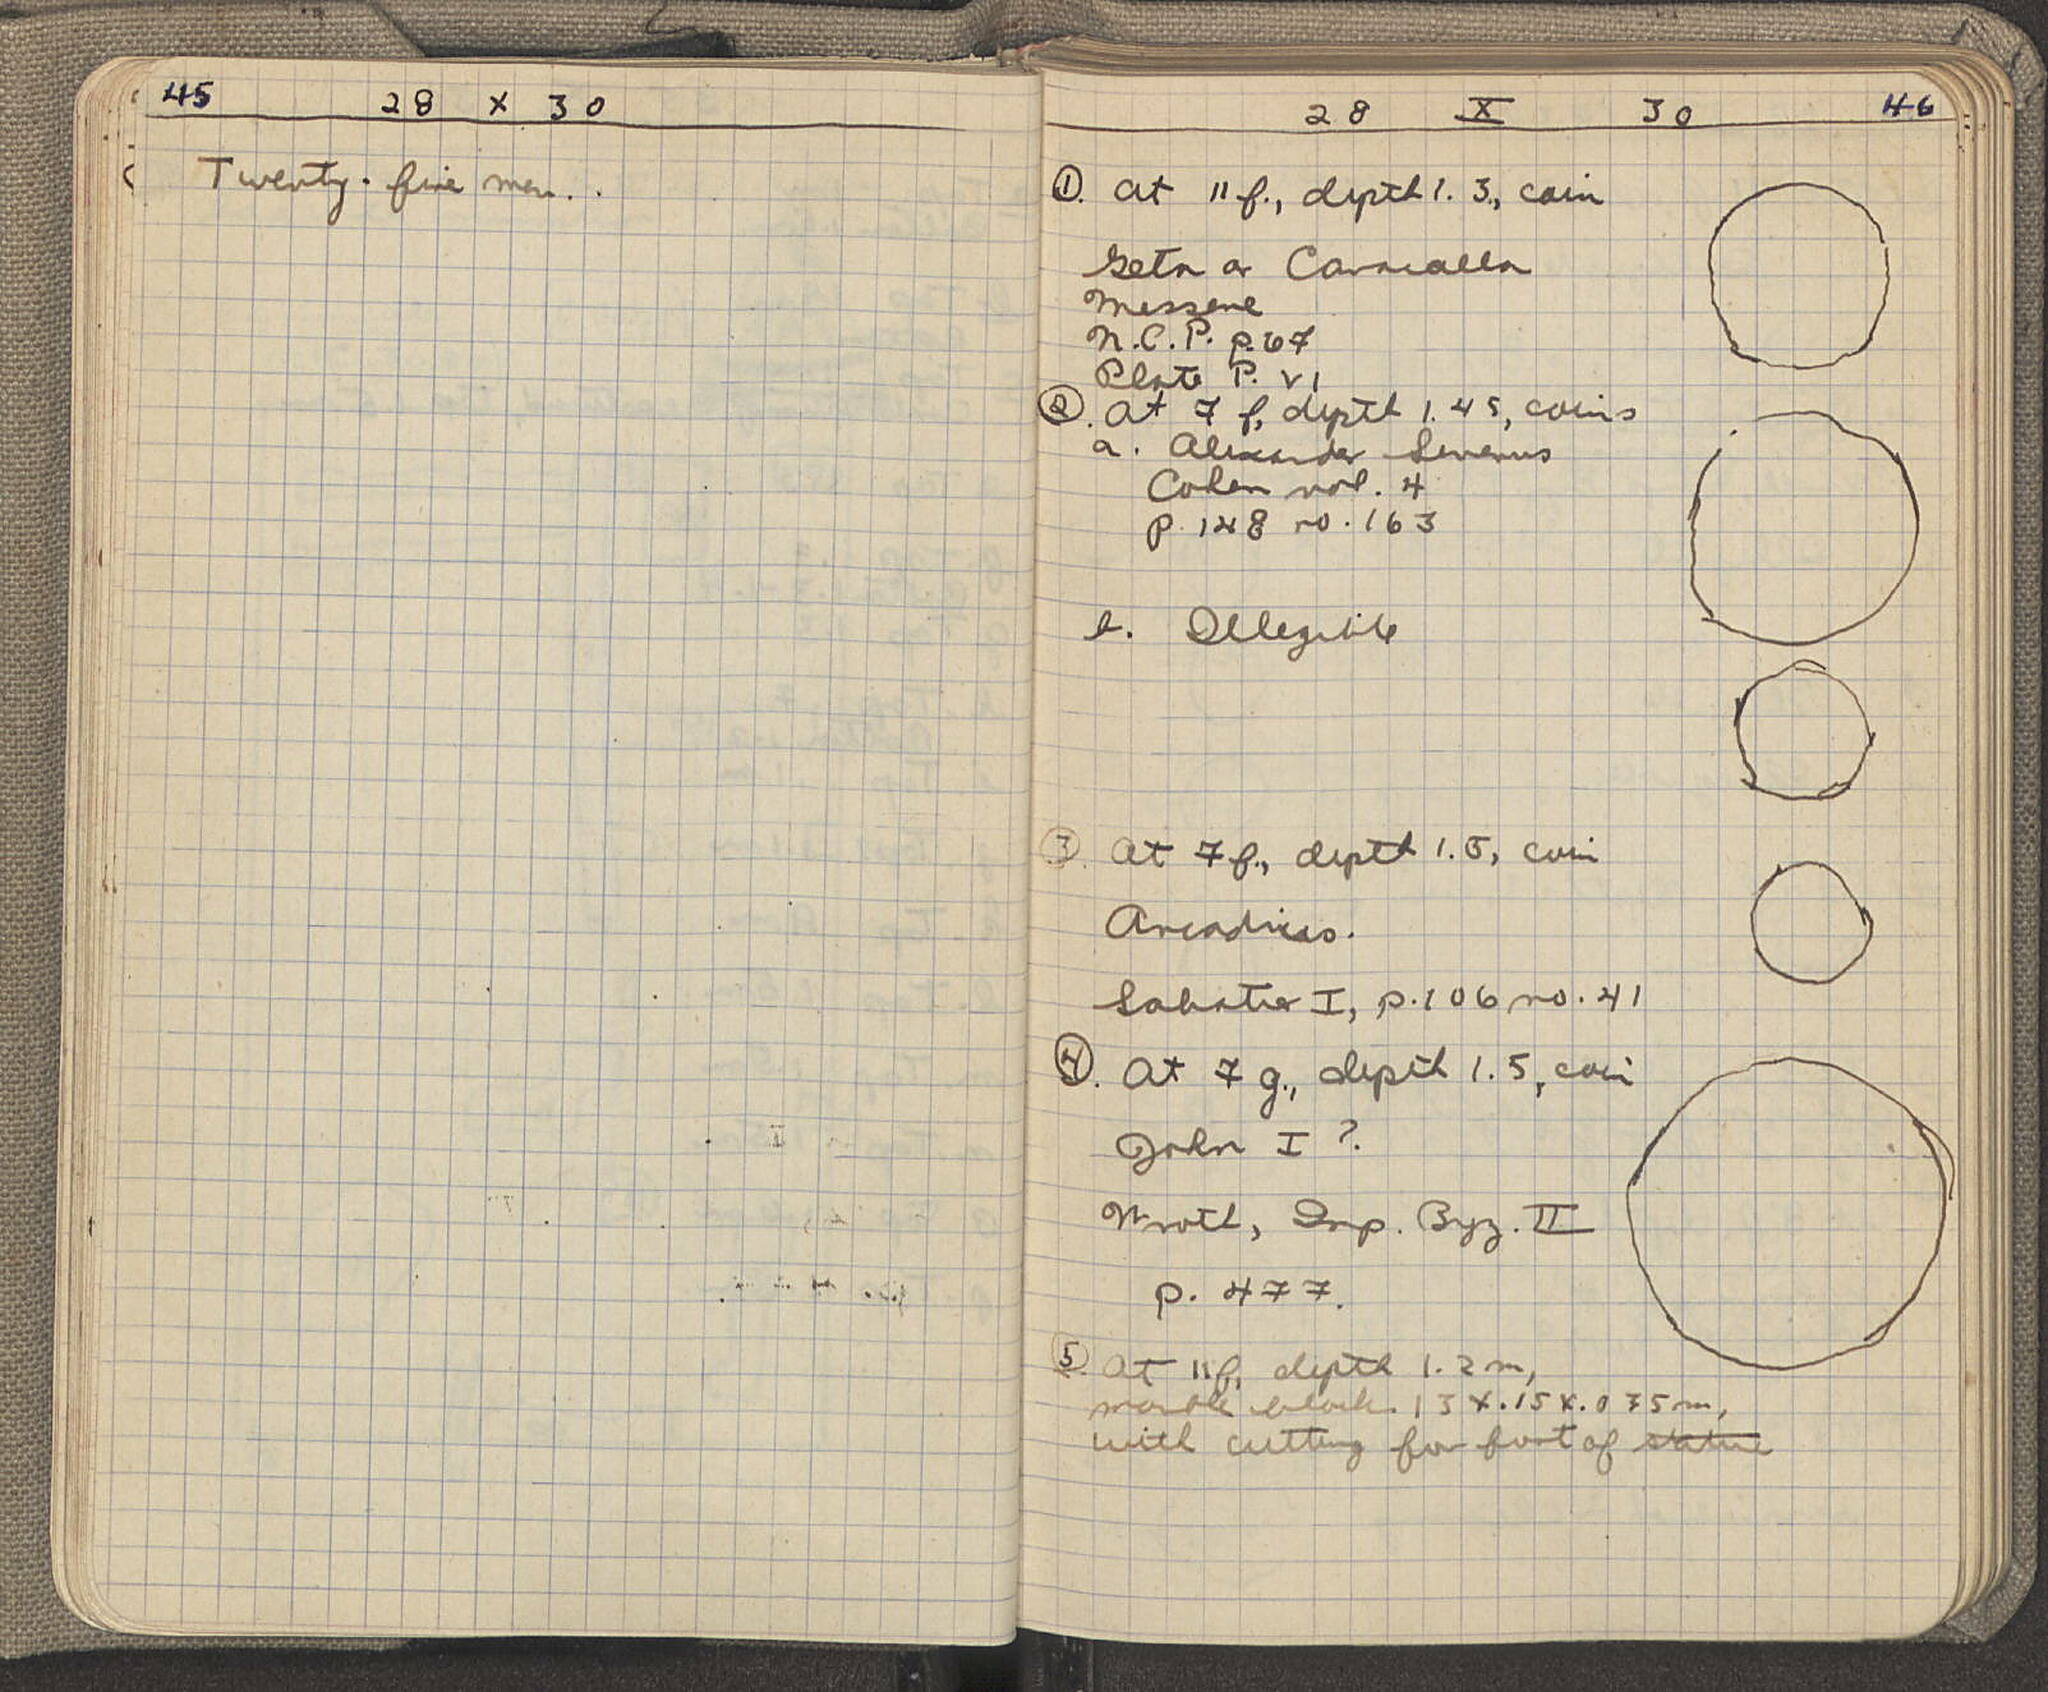 45 28 X 30
Twenty-five men.
28 X 30 46
① At 11 f., depth 1.3, coin
Geta or Caracalla
Messene
N.C.P. p. 67
Plate P. VI
② . At 7 f, depth 1.45, coins
a. Alexander Severus
Cohen vol. 4
p. 148 no. 163
b. Illegible
③ . At 7 f., depth 1.5, coin
Arcadius.
Sabatier I, p. 106 no. 41
④ . At 7 g., depth 1.5, coin
John I ?
Wroth, Imp. Byz. II
p. 477.
⑤ . At 11 f, depth 1.2 m,
marble block .13 x .15 x .075 m,
with cutting for foot of statue